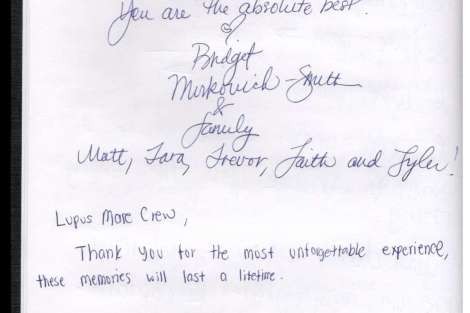 You are the absolute best.
Bridget
Mirkovich-Smith
&
Family
Matt, Tara, Trevor, Faith and Tyler!
Lupus Mare Crew,
Thank you for the most unforgettable experience,
these memories will last a lifetime.